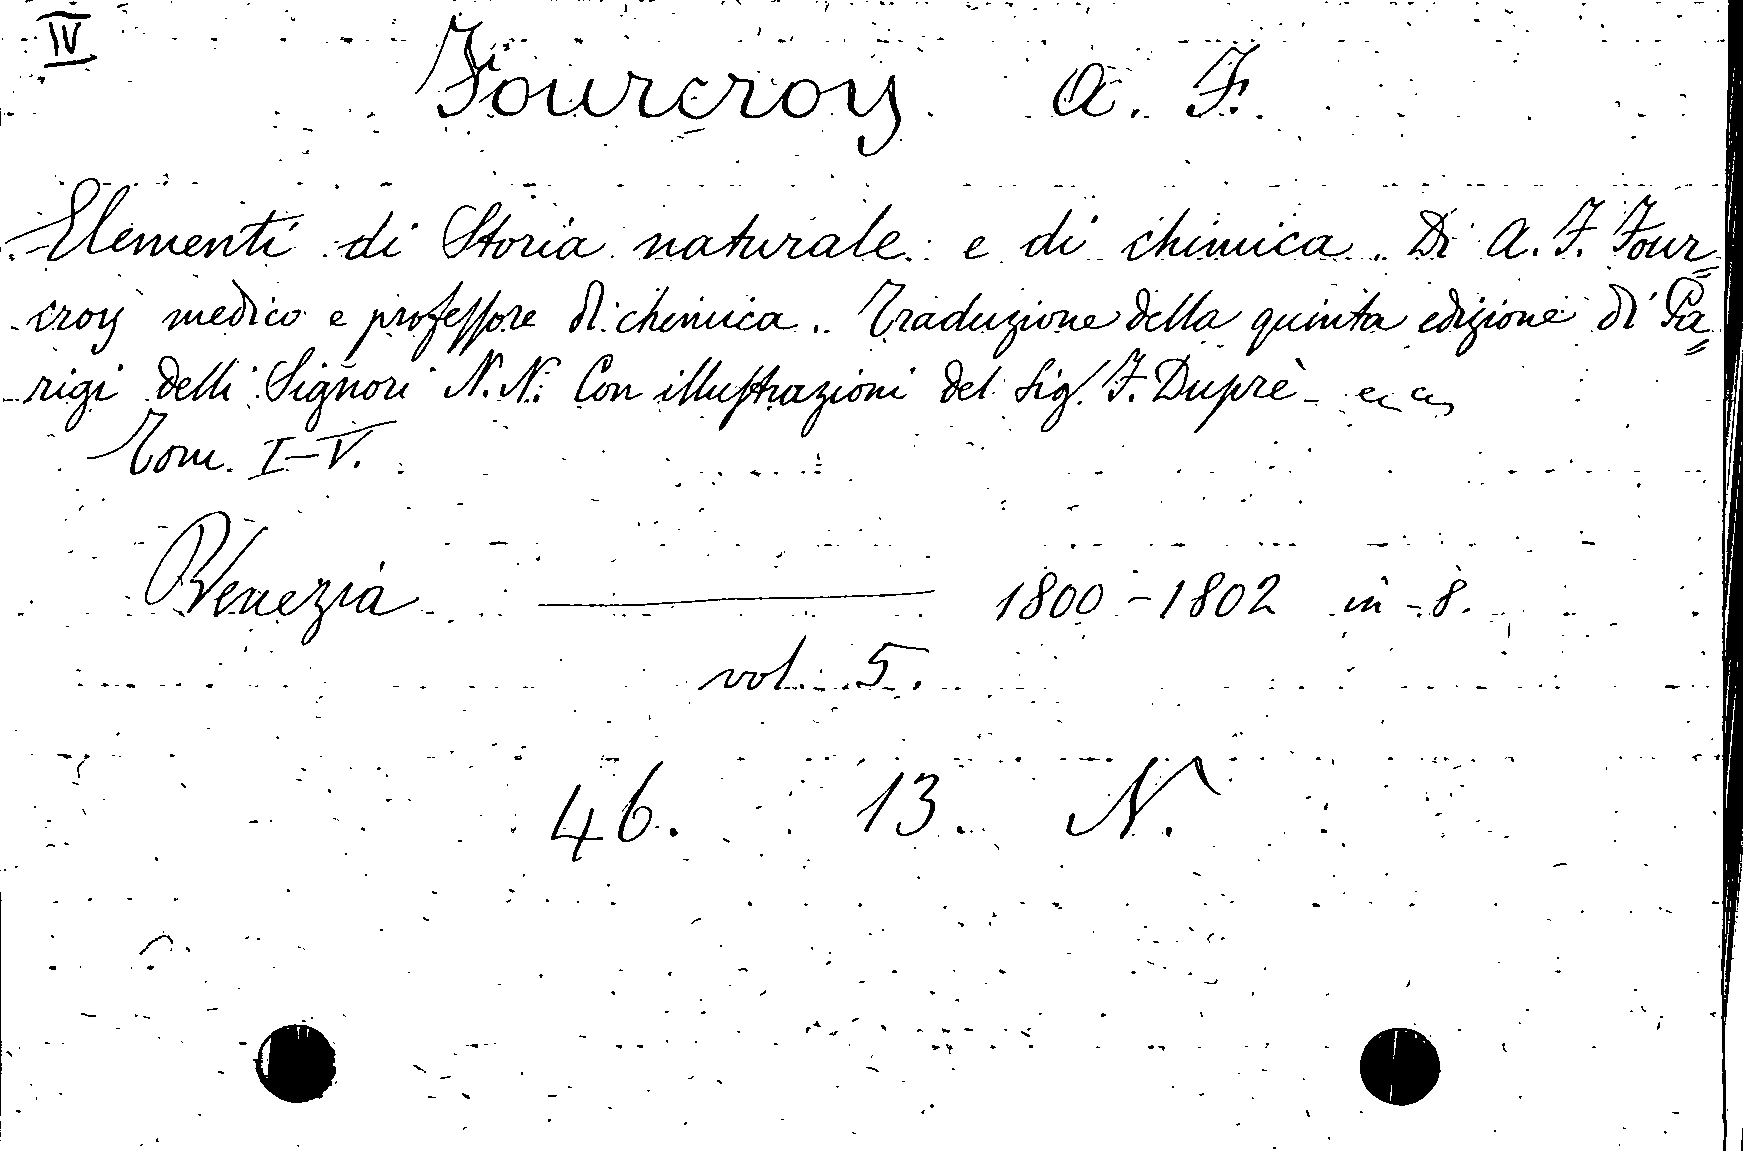 IV
Fourcroy A. F.
Elementi di Storia naturale e di chimica. Di A. F. Four=
croy medico e professore di chimica. Traduzione della quinta edizione di Pa=
rigi delli Signori N. N. Con illustrazioni del Sig. F. Duprè
Tom. I-V.
Venezia — 1800-1802 in-8.
vol. 5.
46. 13. N.